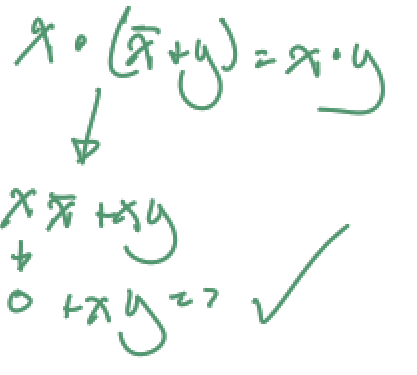 x • (x̄ + y) = x • y
x x̄ + xy
0 + xy =>